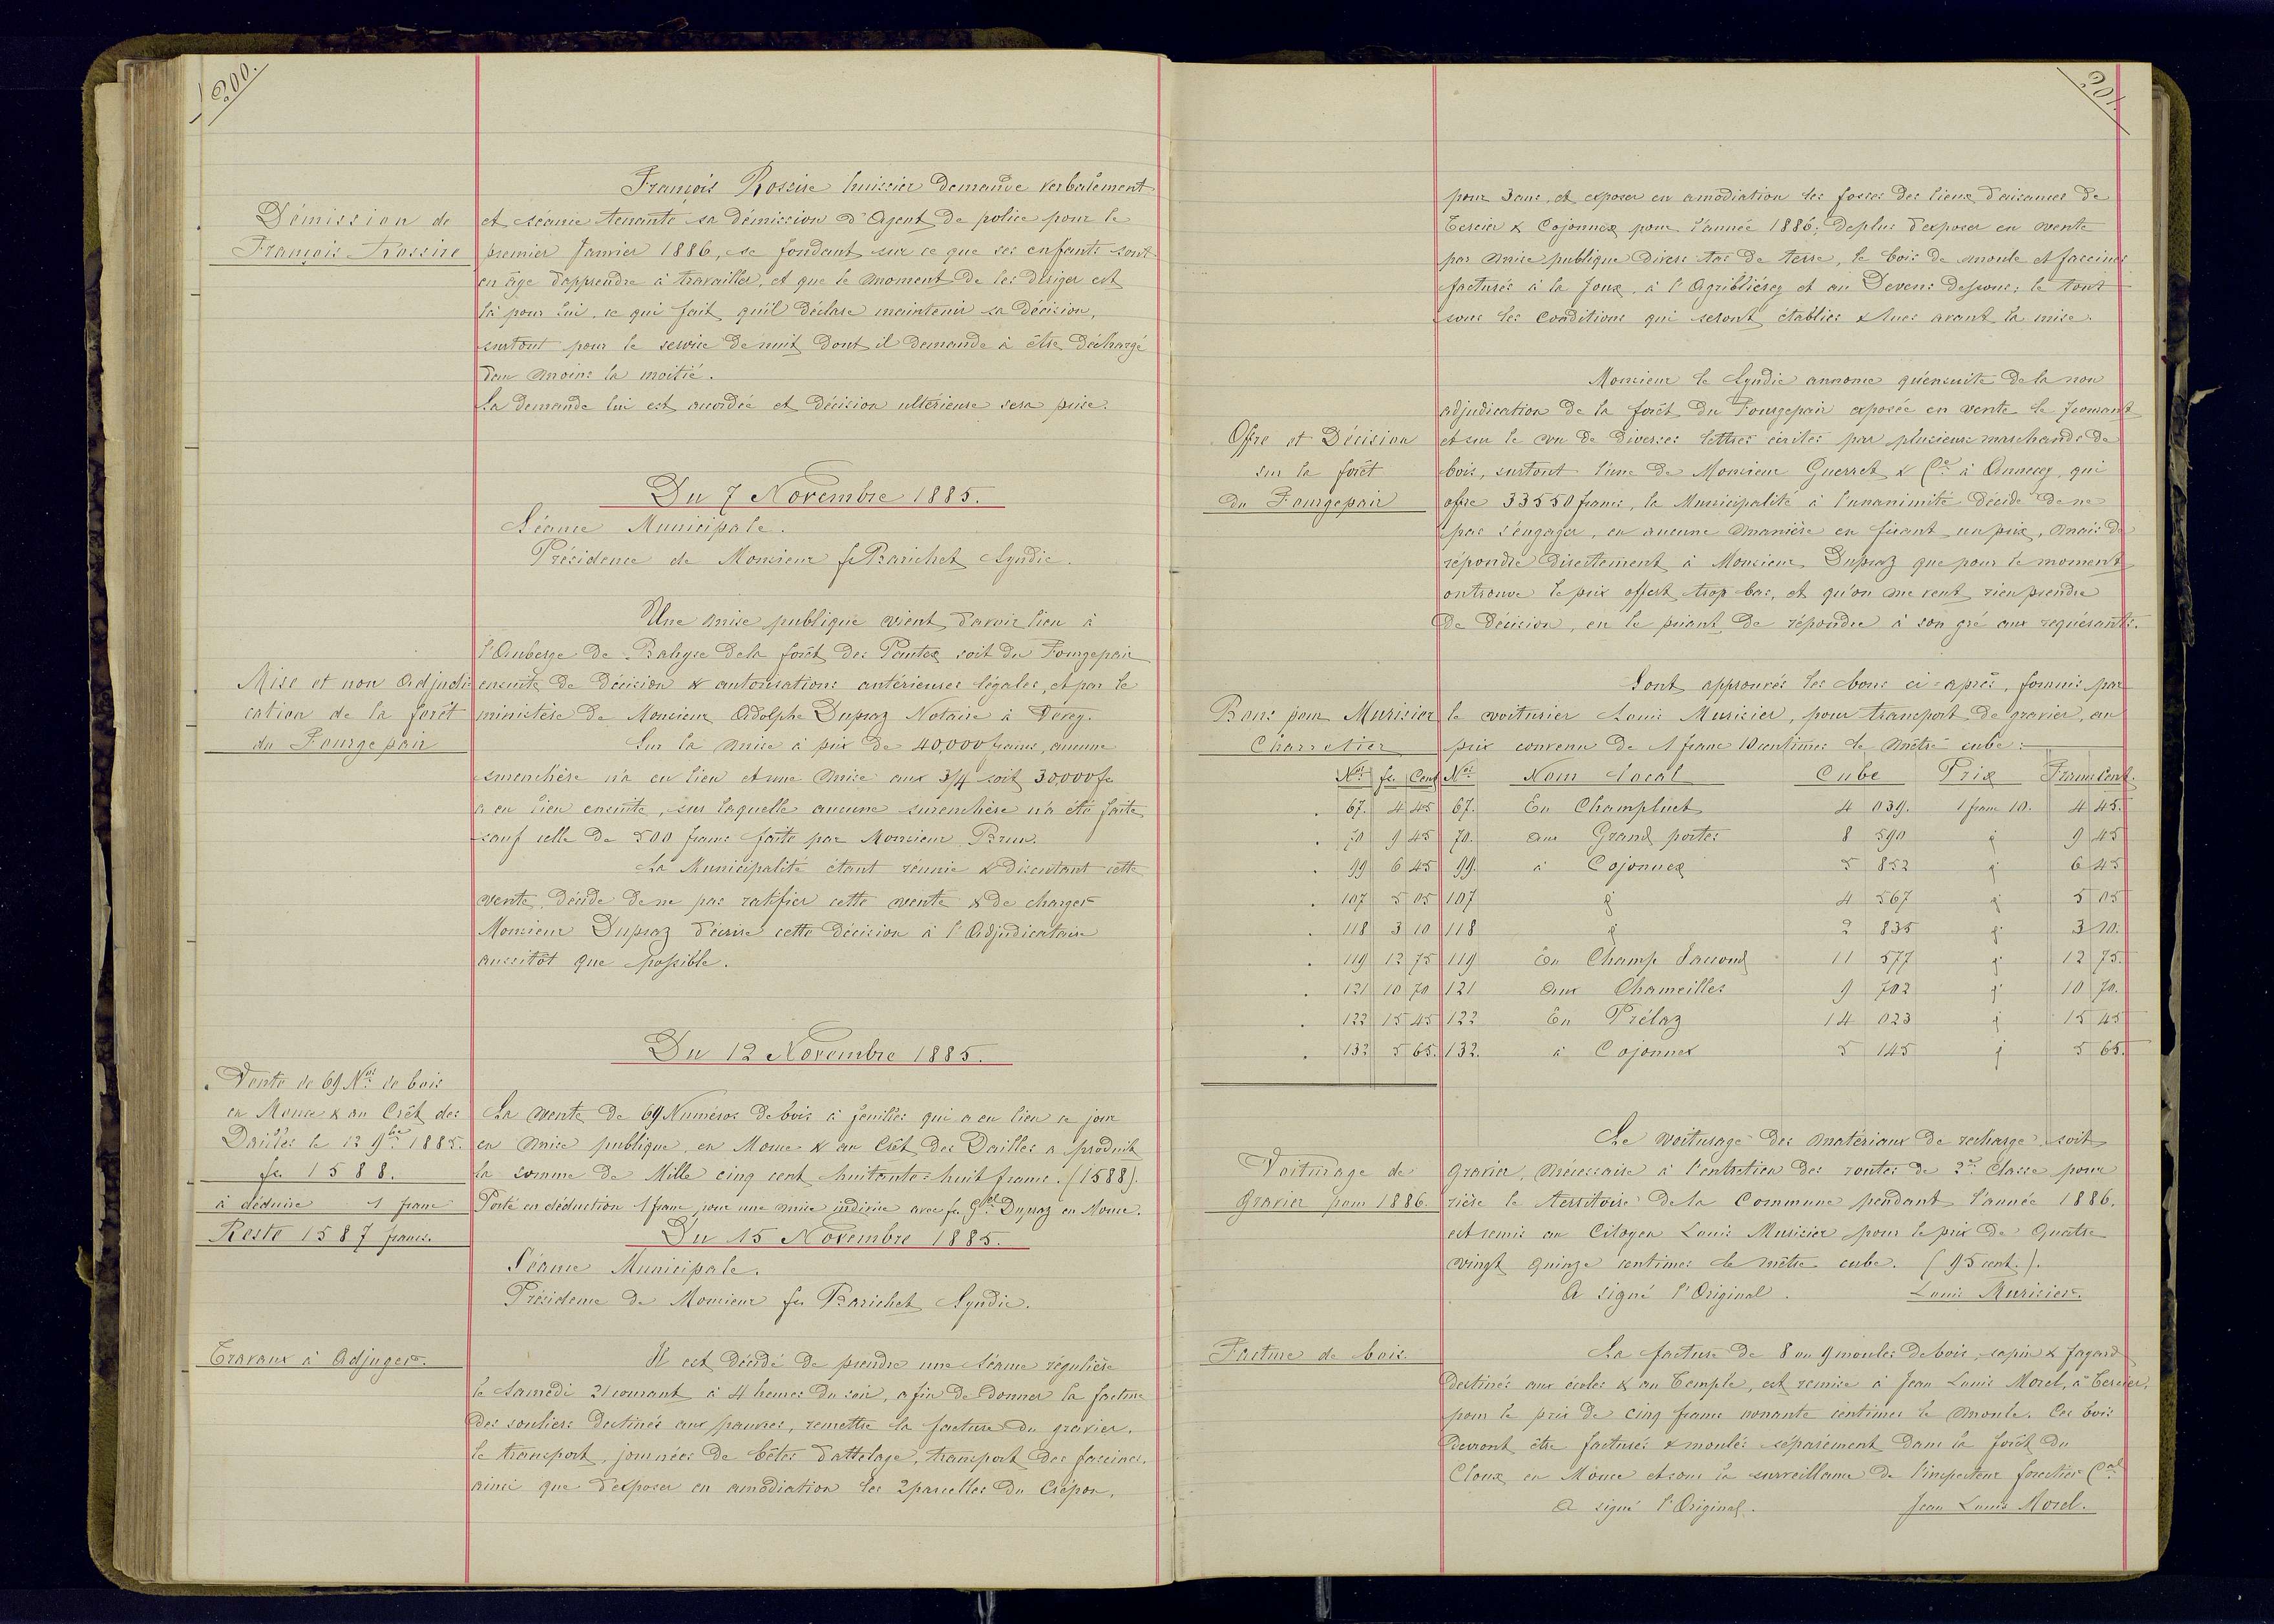 200.
François Rossire huissier demande verbalement
Démission de
François Rossire
et séance tenante sa démission d'Agent de police pour le
premier Janvier 1886, se fondant sur ce que ses enfants sont
en âge d'apprendre à travailler, et que le moment de les diriger est
là pour lui, ce qui fait qu'il déclare maintenir sa décision,
surtout pour le service de nuit dont il demande à être déchargé
d'au moins la moitié.
Sa demande lui est accordée et décision ultérieure sera prise.
Du 7 Novembre 1885.
Séance Municipale.
Présidence de Monsieur fs Barichet Syndic.
Mise et non Adjudi-
cation de la forêt
du Fourgepair
Une mise publique vient d'avoir lieu à
l'Auberge de Baleyre de la forêt des Pautex soit du Fourgepair
ensuite de décision & autorisations antérieures légales, et par le
ministère de Monsieur Adolphe Dupraz Notaire à Vevey.
Sur la mise à prix de 40,000 francs, aucune
surenchère n'a eu lieu et une mise aux 3/4 soit 30,000 fs
a eu lieu ensuite, sur laquelle aucune surenchère n'a été faite
sauf celle de 500 francs faite par Monsieur Brun.
La Municipalité étant réunie & discutant cette
vente, décide de ne pas ratifier cette vente & de charger
Monsieur Dupraz d'écrire cette décision à l'Adjudicataire
aussitôt que possible.
Du 12 Novembre 1885.
Vente de 69 Nos de bois
en Mouce & au Crêt des
Dailles le 12 9bre 1885.
fs 1588.
à déduire 1 franc
Reste 1587 francs.
La vente de 69 Numéros de bois à feuilles qui a eu lieu ce jour
en mise publique en Mouce & au Crêt des Dailles a produit
la somme de Mille cinq cent huitante-huit francs. (1588).
Porté en déduction 1 franc, pour une mise indivise avec fs Gel Dupraz en Mouce.
Du 15 Novembre 1885.
Séance Municipale.
Présidence de Monsieur fs Barichet Syndic.
Travaux à Adjuger.
Il est décidé de prendre une séance régulière
le Samedi 21 courant à 4 heures du soir, afin de donner la facture
des souliers destinés aux pauvres, remettre la facture du gravier,
le transport, journées de bêtes d'attelage, transport des fascines,
ainsi que d'exposer en amodiation les 2 parcelles du Crépon,
201.
pour 3 ans, et exposer en amodiation les fosses des lieux d'aisances de
Tercier & Cojonnex pour l'année 1886; deplus d'exposer en vente
par mise publique divers tas de terre, le bois de moule et fascines
facturés à la Joux, à l'Agribliérey et au Devens dessous; le tout
sous les conditions qui seront établies & lues avant la mise.
Offre et Décision
sur la forêt
du Fourgepair
Monsieur le Syndic annonce qu'ensuite de la non
adjudication de la forêt du Fourgepair exposée en vente le 7 courant
et sur le vu de diverses lettres écrites par plusieurs marchands de
bois, surtout l'une de Monsieur Guerret & Cie à Annecy, qui
offre 33550 francs, la Municipalité à l'unanimité décide de ne
pas s'engager, en aucune manière en fixant un prix, mais de
répondre directement à Monsieur Dupraz que pour le moment
on trouve le prix offert trop bas, et qu'on ne veut rien prendre
de décision, en le priant de répondre à son gré aux requérants.
Bons pour Murisier
Charretier
Sont approuvés les bons ci-après, fournis par
le voiturier Louis Murisier, pour transport de gravier, au
prix convenu de 1 franc 10 centimes le mètre cube:
Nos fs Cent Nos Nom Local Cube Prix Francs Cent.
67. 4 45 67. En Champluet 4 039. 1 franc 10. 4 45.
70 9 45 70. aux Grand portes 8 590 " 9 45
99 6 45 99. à Cojonnex 5 852 " 6 45
107 5 05 107 " 4 567 " 5 05
118 3 10 118 " 2 835 " 3 10.
119 12 75 119 En Champ Saccond 11 577 " 12 75.
121 10 70 121 aux Chameilles 9 702 " 10 70.
122 15 45 122 En Prélaz 14 023 " 15 45
132 5 65. 132. à Cojonnex 5 145 " 5 65.
Voiturage de
gravier pour 1886
Le voiturage des matériaux de recharge soit
gravier, nécessaire à l'entretien des routes de 3e Classe pour
rière le territoire de la Commune pendant l'année 1886,
est remis au Citoyen Louis Murisier pour le prix de quatre
vingt quinze centimes le mètre cube. (95 cent.).
A signé l'Original. Louis Murisier.
Facture de bois.
La facture de 8 ou 9 moules de bois, sapin & fayard
destinés aux écoles & au Temple, est remise à Jean Louis Morel, à Tercier,
pour le prix de cinq francs nonante centimes le moule. Ces bois
devront être facturés & moulés séparément dans la forêt du
Cloux en Mouce et sous la surveillance de l'inspecteur forestier Cal
A signé l'Original. Jean Louis Morel.